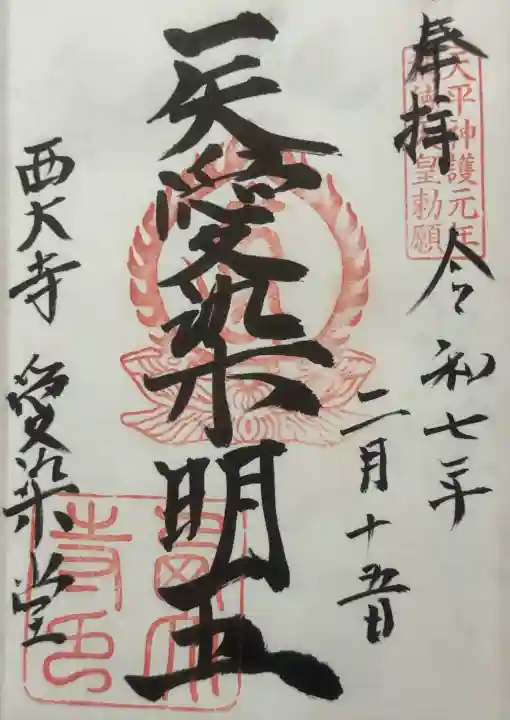 奉拝
天平神護元年
称徳天皇勅願
令和七年
二月十五日
愛染明王
西大寺 愛染堂